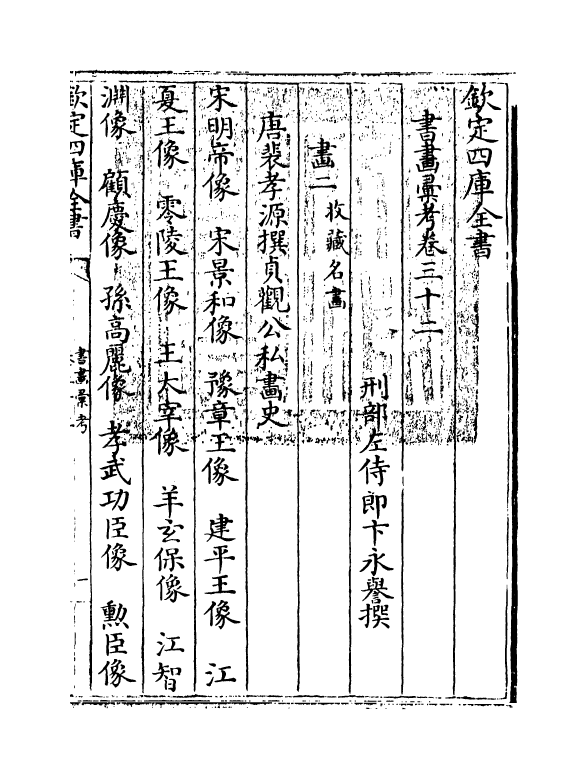 欽定四庫全書
書畫彚考卷三十二
刑部左侍郎卞永譽撰
畫二收藏名畫
唐裴孝源撰貞觀公私畫史
宋明帝像　宋景和像　豫章王像　建平王像　江
夏王像　零陵王像　王太宰像　羊玄保像　江智
淵像　顧慶像　孫高麗像　孝武功臣像　勲臣像
欽定四庫全書
書畫彚考
一